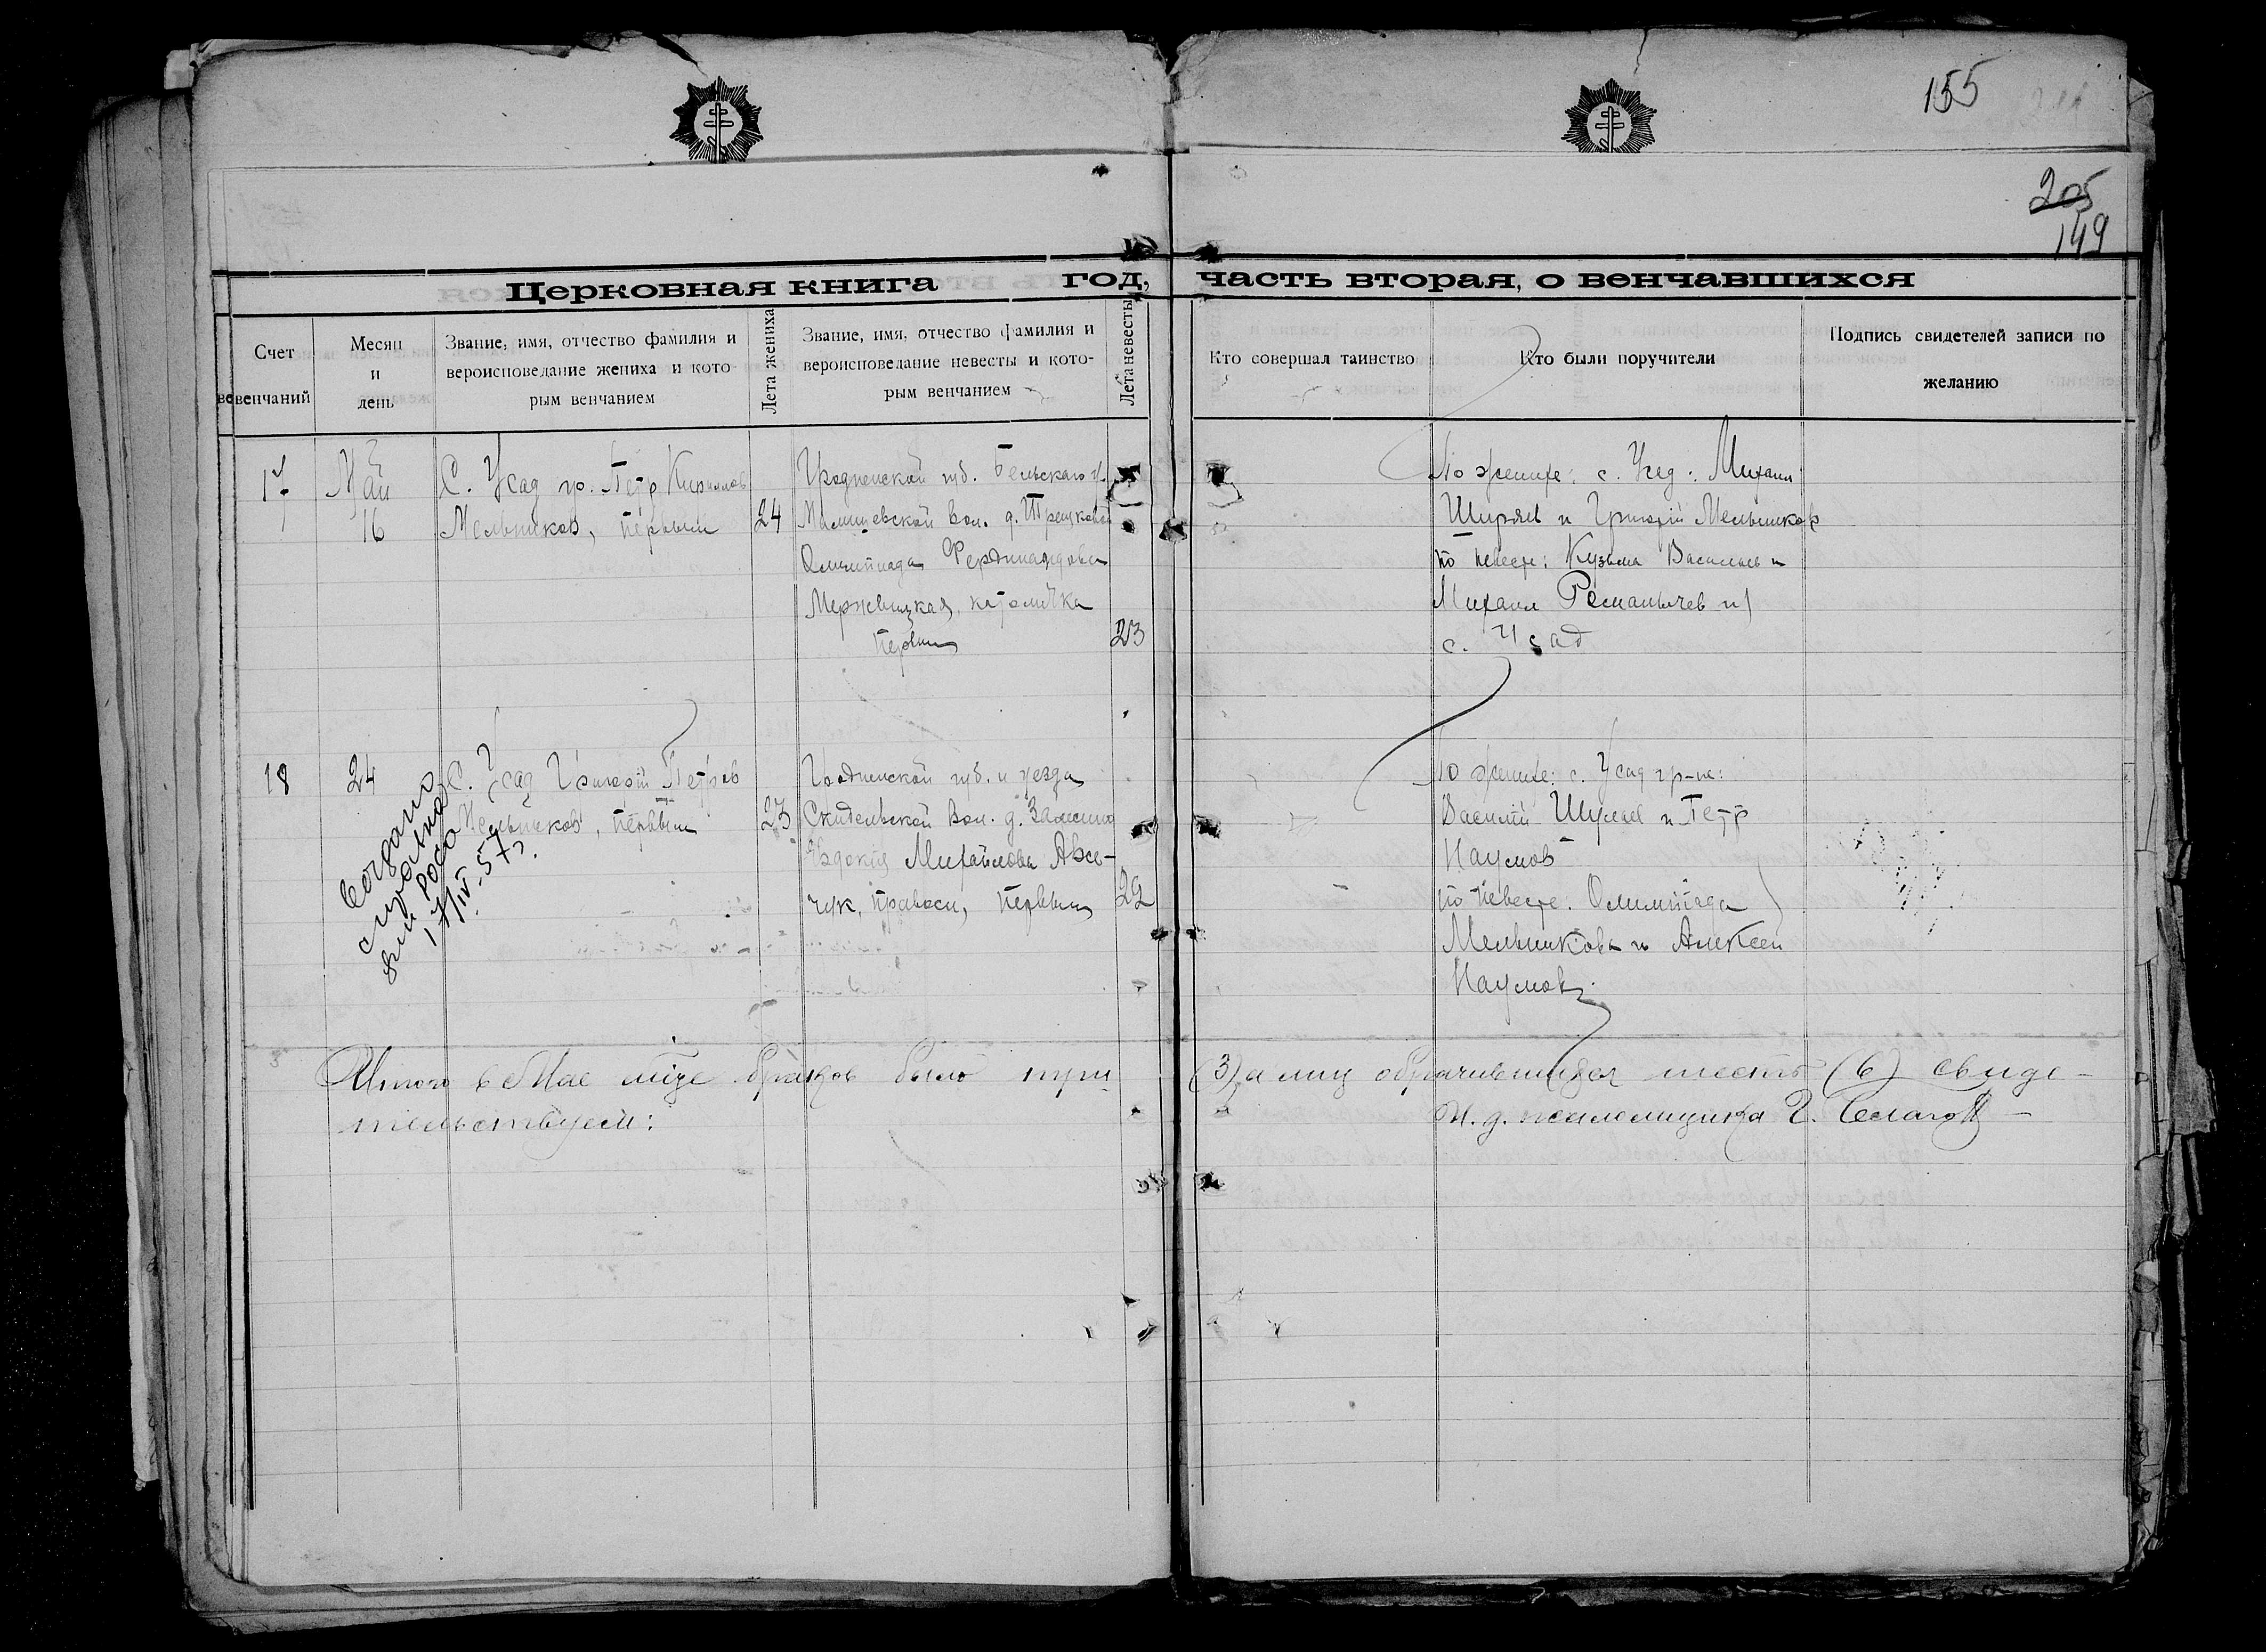 155
205
149
Церковная книга год, часть вторая, о венчавшихся
Счет
венчаний
Месяц
и
день
Звание, имя, отчество фамилия и
вероисповедание жениха и кото-
рым венчанием
Лета жениха
Звание, имя, отчество фамилия и
вероисповедание невесты и кото-
рым венчанием
Лета невесты
Кто совершал таинство
Кто были поручители
Подпись свидетелей записи по
желанию
17
Май
16
С. Усад гр. Петр Кириллов
Мельников, первым
24
Гродненской губ. Бельскаго у.
вол. д.
Олимпиада Фердинандова
католичка
первым
23
По женихе: с. Усад: Михаил
Ширяев и Григорий Мельников
по невесте: Кузьма Васильев и
Михаил Романычев из
с. Усад
18
24
С. Усад Григорий Петров
Мельников, первым
23
Гродненской губ. и уезда
Скидельской вол. д.
Евдокия Михайлова Авсе-
чук, правосл, первым
22
По женихе: с. Усад гр-не:
Василий и Петр
Наумов
по невесте: Олимпиада
Мельникова и Алексей
Наумов
17/IV-57г.
Итого в Мае м-це браков было три
(3), а лиц обрачившихся шесть (6) свиде-
тельствуем:
И. д. псаломщика Г.